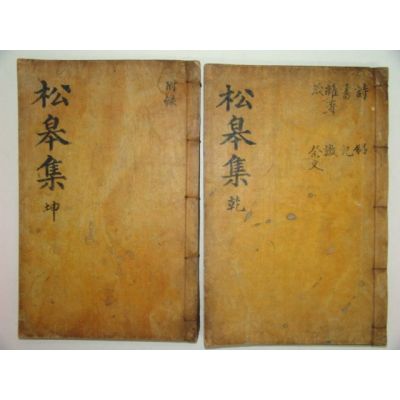 松皐集 乾
詩
書 記
雜著
祭文
松皐集 坤
附錄